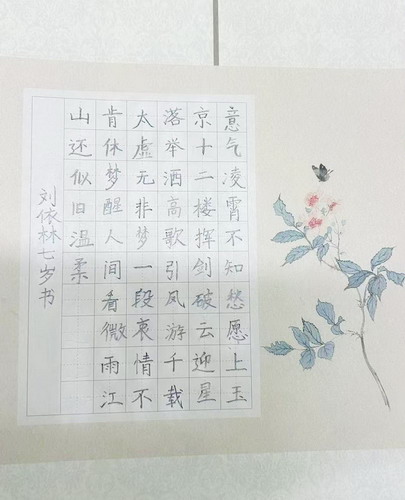 意气凌霄不知愁愿上玉
京十二楼挥剑破云迎星
落举酒高歌引凤游千载
太虚无非梦一段衷情不
肯休梦醒人间看微雨江
山还似旧温柔
刘依林七岁书